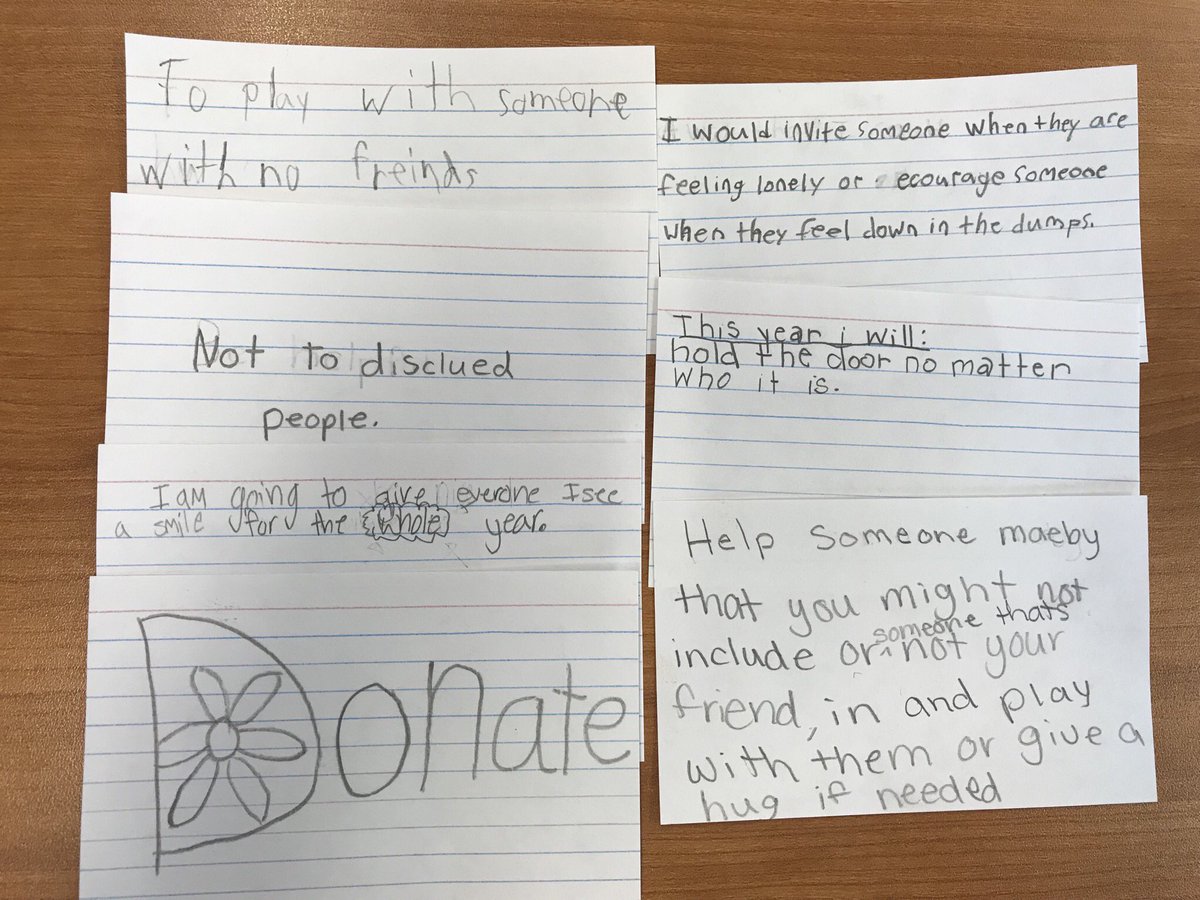 To play with someone
with no freinds
Not to disclued
people.
I am going to give everone I see
a smile for the whole year.
Donate
I would invite someone when they are
feeling lonely or ecourage someone
when they feel down in the dumps.
This year i will:
hold the door no matter
who it is.
Help someone maeby
that you might not
include or someone thats not your
friend, in and play
with them or give a
hug if needed